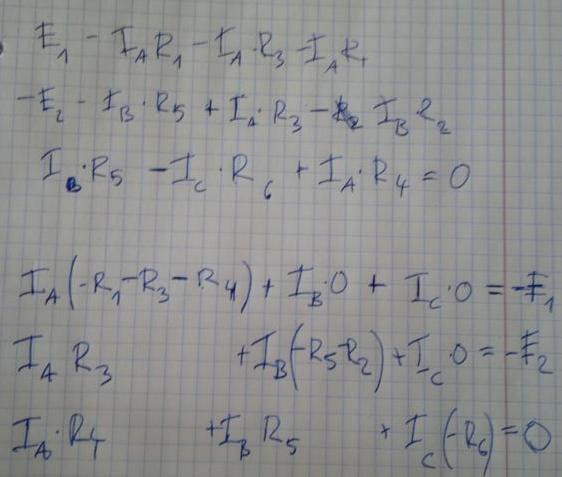 E₁ - I_A R₁ - I_A · R₃ - I_A R
-E₂ - I_B · R₅ + I_A · R₃ - I_B R₂
I_B · R₅ - I_C · R₆ + I_A · R₄ = 0
I_A (-R₁ - R₃ - R₄) + I_B · 0 + I_C · 0 = -E₁
I_A R₃ + I_B (-R₅ - R₂) + I_C · 0 = -E₂
I_A · R₄ + I_B R₅ + I_C (-R₆) = 0